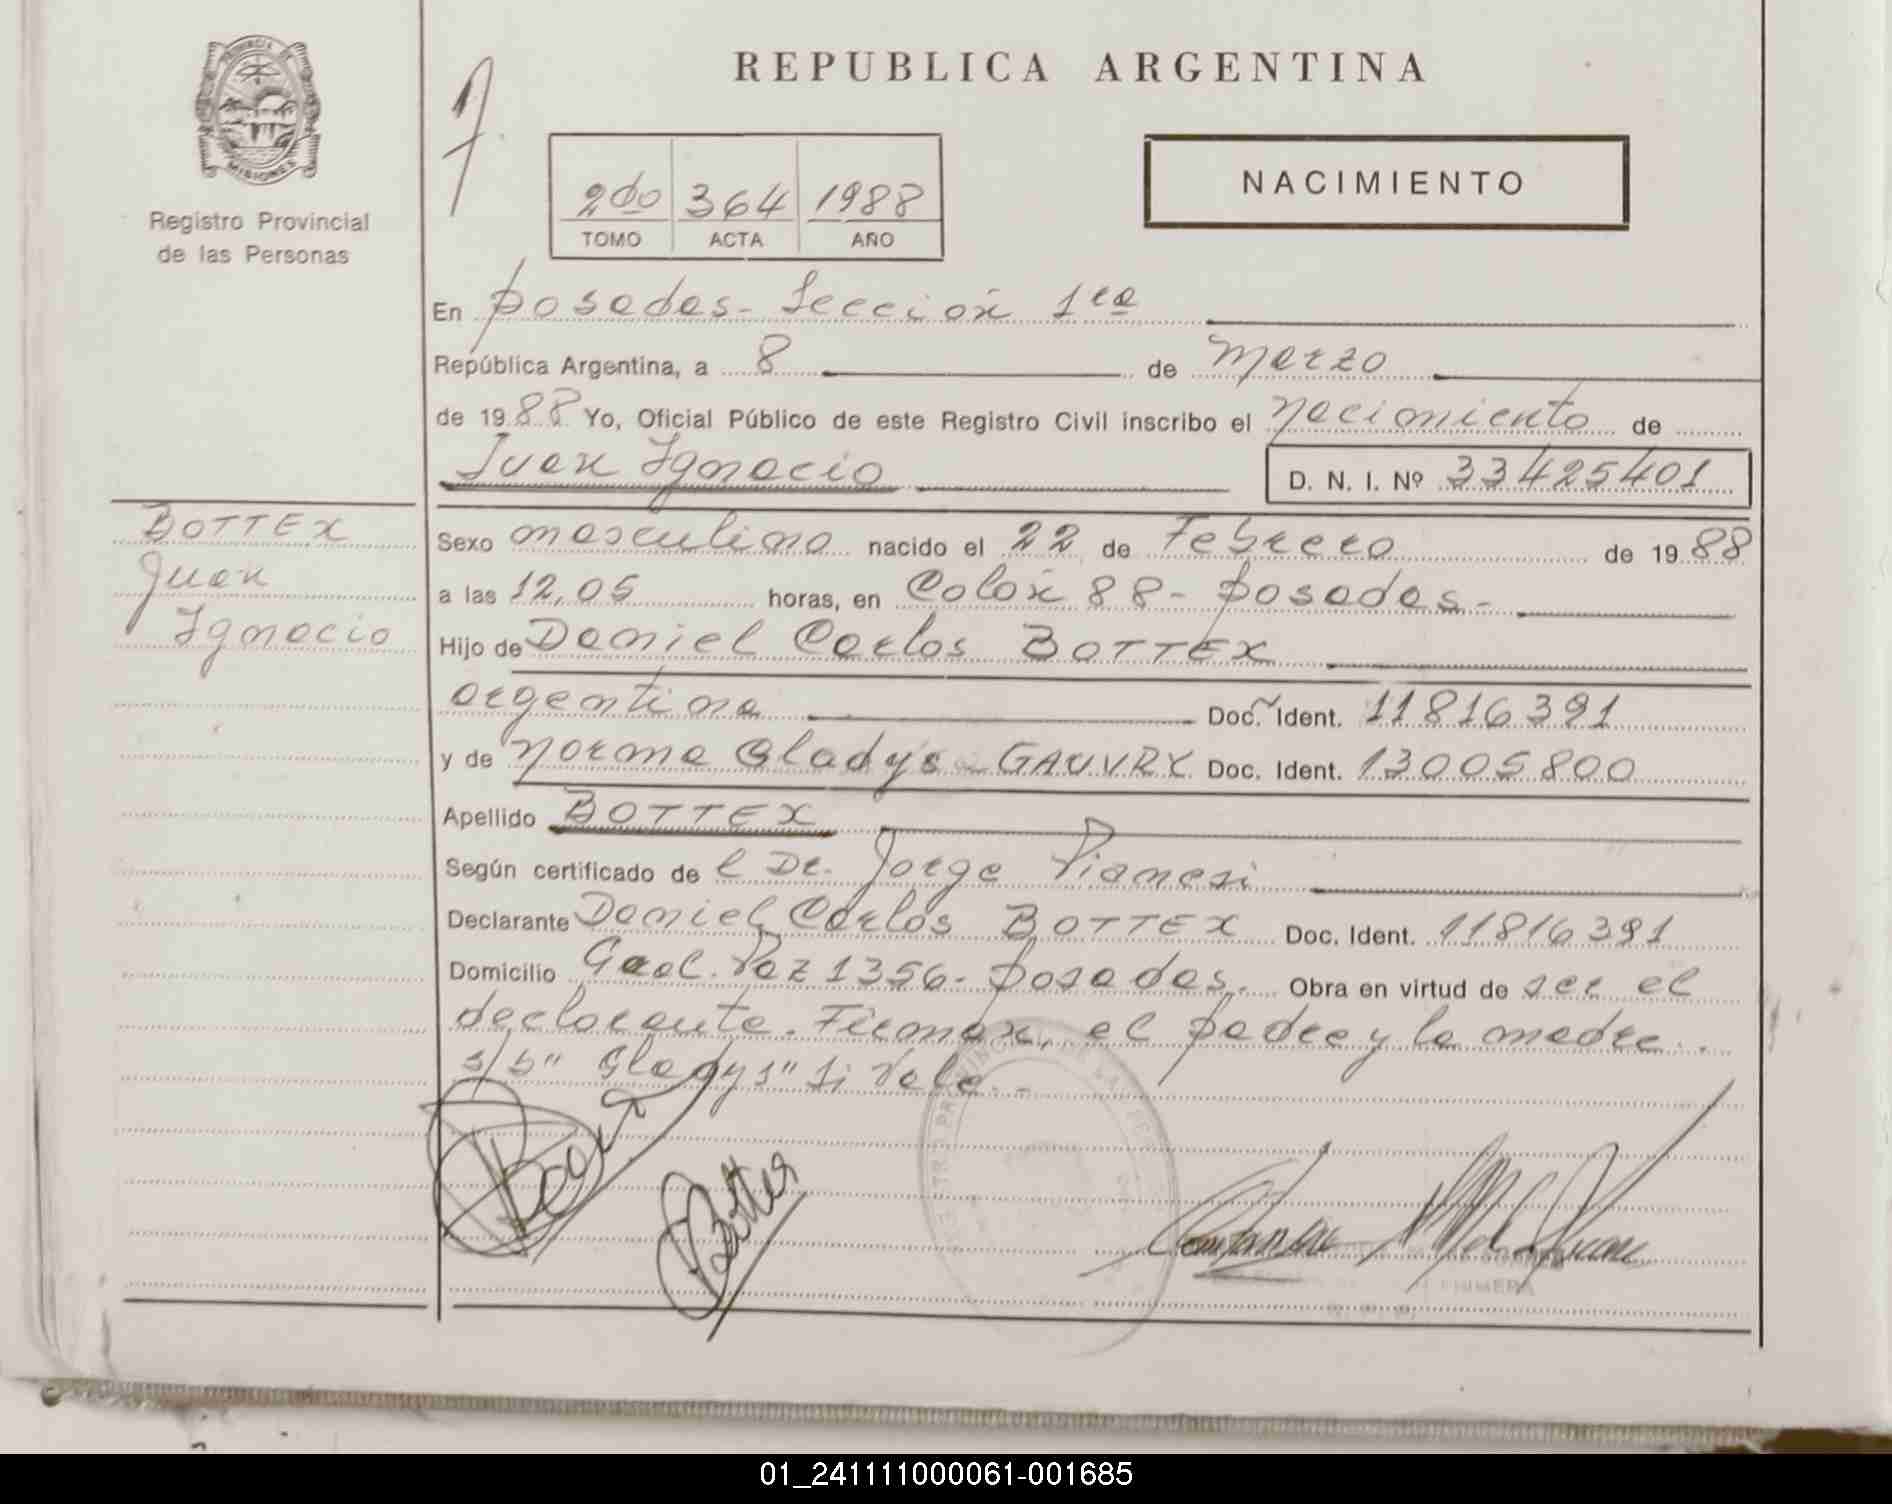 REPUBLICA ARGENTINA
PROVINCIA DE
MISIONES
Registro Provincial
de las Personas
2do 364 1988
TOMO ACTA AÑO
NACIMIENTO
En Posadas- Sección 1ra
República Argentina, a 8 de Marzo
de 1988 Yo, Oficial Público de este Registro Civil inscribo el nacimiento de
Juan Ignacio D. N. I. Nº 33425401
BOTTEX
Juan
Ignacio
Sexo masculino nacido el 22 de Febrero de 1988
a las 12,05 horas, en Colón 88- Posadas-
Hijo de Daniel Carlos BOTTEX
argentina Doc. Ident. 11816391
y de Norma Gladys GAUVRY Doc. Ident. 13005800
Apellido BOTTEX
Según certificado de l Dr. Jorge Pianesi
Declarante Daniel Carlos BOTTEX Doc. Ident. 11816391
Domicilio Gral. Paz 1356- Posadas. Obra en virtud de ser el
declarante. Firman, el padre y la madre.
s/b" Gladys" Si Vale.-
PRIMERA
01_241111000061-001685